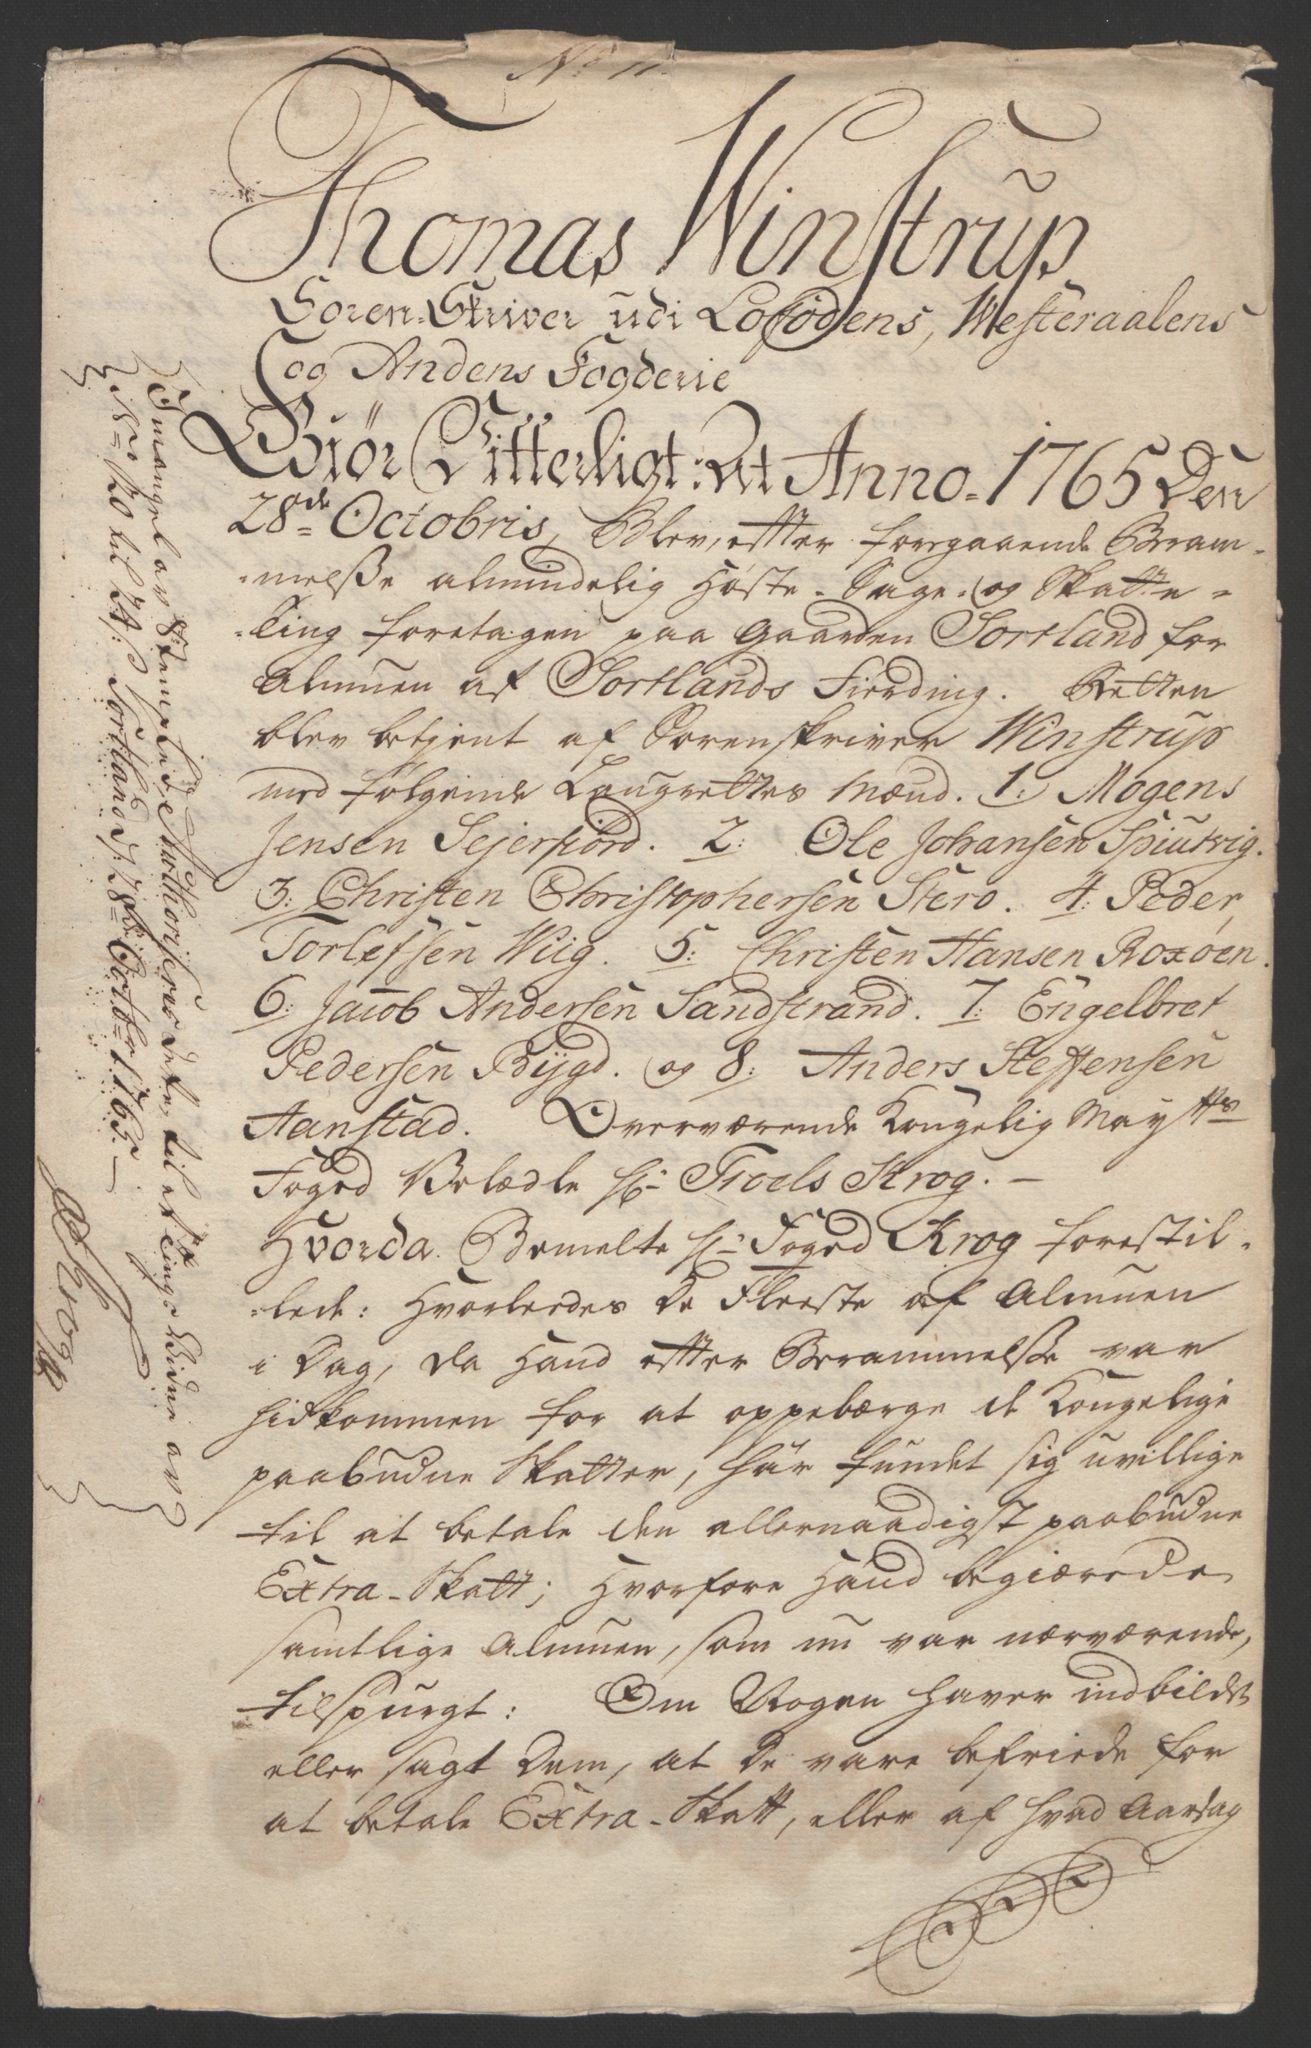 No 11.
Thomas Winstrup
Soren-Skriver udi Lofodens, Westeraalens
og Andens Fogderie
Giør Vitterligt: At Anno 1765 Den
28de Octobris, Blev, efter foregaaende Beram-
-melsße almindelig Høste- Sage- og Skatte-
-Ting foretagen paa Gaarden Sortland for
Almuen af Sortlands Fierding. Retten
blev betjent af Sorenskriver Winstrup
med følgende Laugrettes Mænd. 1: Mogens
Jensen Sejersfiord. 2: Ole Johansen Spiutvig.
3: Christen Christophersen Stero. 4: Peder
Torlefssen Wiig. 5: Christen Hansen Roxøen.
6: Jacob Andersen Sandstrand. 7: Engelbret
Pedersen Bÿgd. og 8: Anders Steffensen
Aanstad. Overværende Kongelig Mayttes
Foged Velædle Hr Troels Krog. -
Hvorda Bemelte Hr Foged Krog forestil-
-lede: Hvorledes De Fleeste af Almuen
i Dag, da Hand efter Berammelsße var
hidkommen for at oppebærge de Kongelige
paabudne Skatter, har fundet sig uvillige
til at betale den allernaadigst paabudne
Extra-Skatt; Hvorfore Hand begiærede
samtlige Almuen, som nu var nærværende,
tilspurgt: Om Nogen haver indbildt
eller sagt Dem, at De vare befriede for
at betale Extra-Skatt, eller af hvad Aarsag
I mangel av Stemplet Authoriseres dette, til et Tings Vidne av
No 20 til 24 s. Sortland d. 28de Octbr 1765. -
TKrog